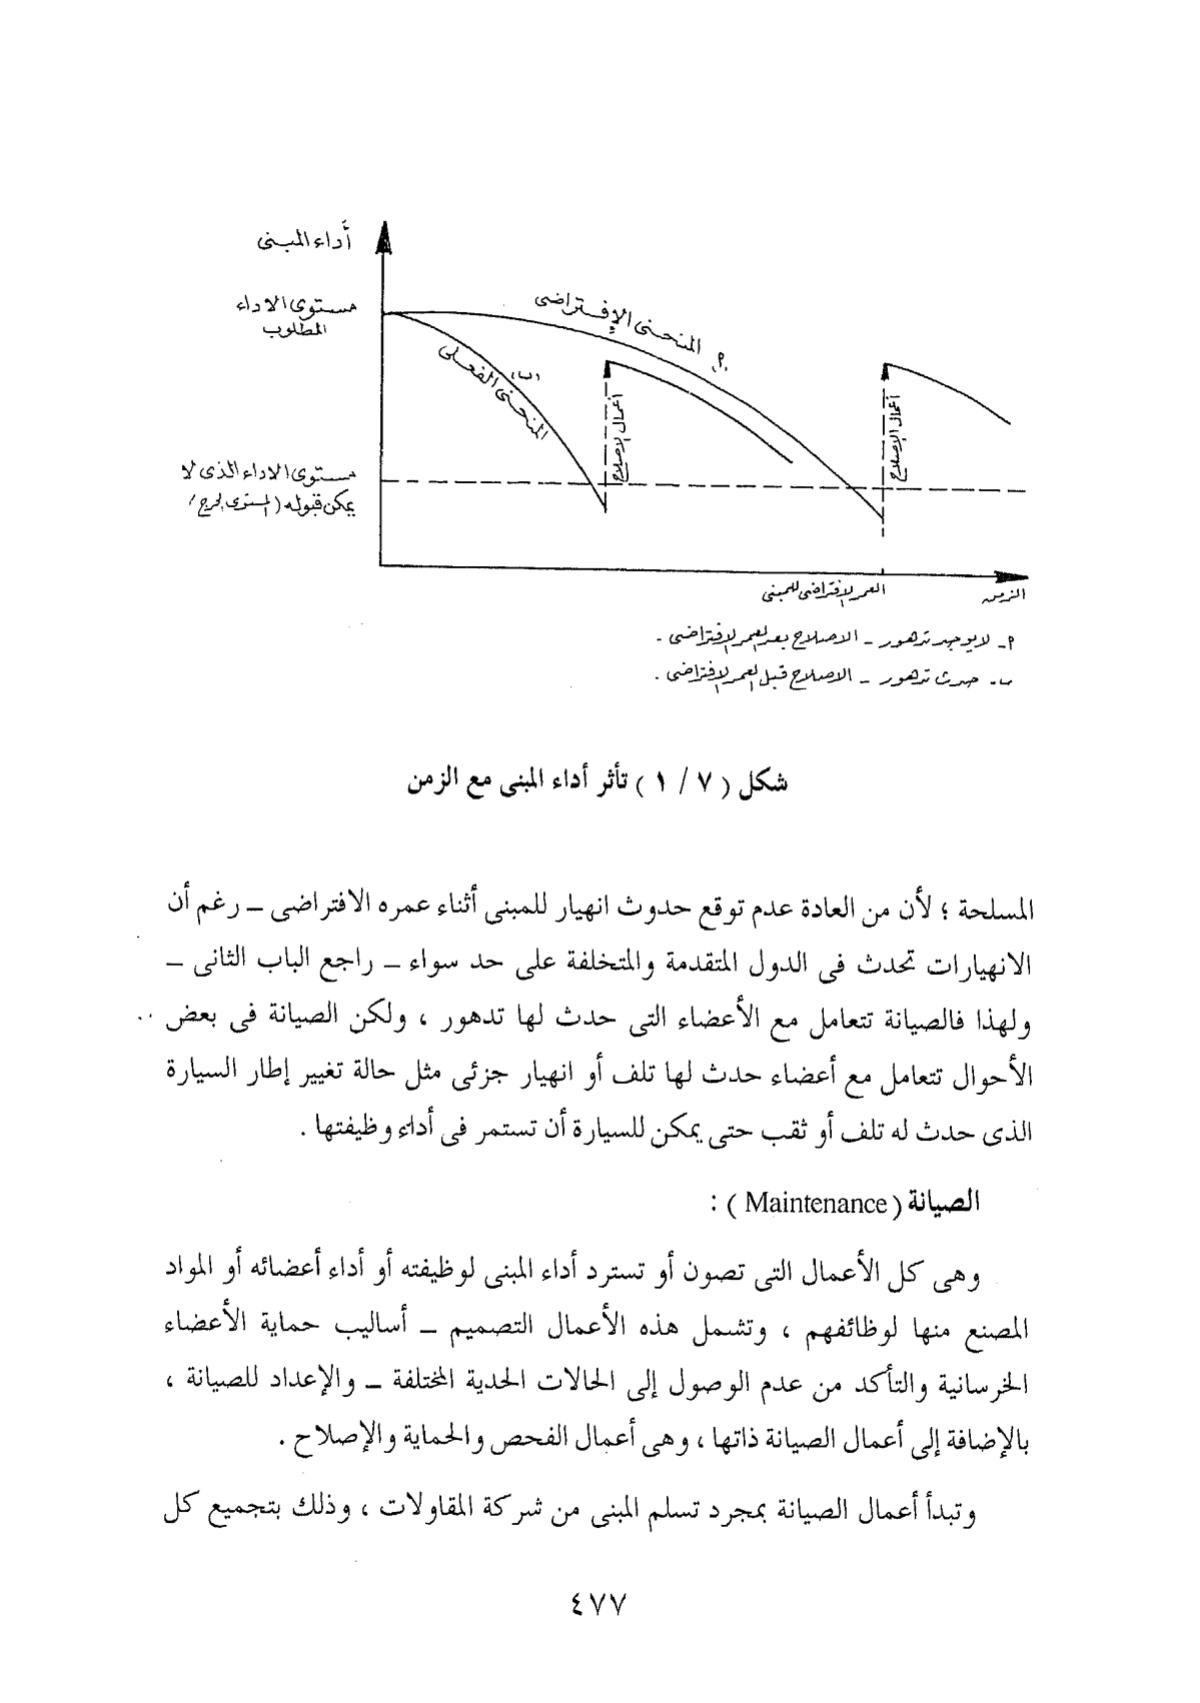 أداء المبنى
مستوى الاداء
المطلوب
المنحنى الإفتراضى
(ب)
المنحنى الفعلى
أعمال الإصلاح
أعمال الإصلاح
مستوى الاداء الذى لا
يمكن قبوله (المستوى الحرج)
العمر الإفتراضى للمبنى
الزمن
أ- لا يوجد تدهور - الاصلاح بعد العمر الإفتراضى .
ب- حدث تدهور - الاصلاح قبل العمر الإفتراضى .
شكل ( ٧ / ١ ) تأثر أداء المبنى مع الزمن
المسلحة ؛ لأن من العادة عدم توقع حدوث انهيار للمبنى أثناء عمره الافتراضى – رغم أن
الانهيارات تحدث فى الدول المتقدمة والمتخلفة على حد سواء – راجع الباب الثانى –
ولهذا فالصيانة تتعامل مع الأعضاء التى حدث لها تدهور ، ولكن الصيانة فى بعض
الأحوال تتعامل مع أعضاء حدث لها تلف أو انهيار جزئى مثل حالة تغيير إطار السيارة
الذى حدث له تلف أو ثقب حتى يمكن للسيارة أن تستمر فى أداء وظيفتها .
الصيانة ( Maintenance ) :
وهى كل الأعمال التى تصون أو تسترد أداء المبنى لوظيفته أو أداء أعضائه أو المواد
المصنع منها لوظائفهم ، وتشمل هذه الأعمال التصميم – أساليب حماية الأعضاء
الخرسانية والتأكد من عدم الوصول إلى الحالات الحدية المختلفة – والإعداد للصيانة ،
بالإضافة إلى أعمال الصيانة ذاتها ، وهى أعمال الفحص والحماية والإصلاح .
وتبدأ أعمال الصيانة بمجرد تسلم المبنى من شركة المقاولات ، وذلك بتجميع كل
٤٧٧